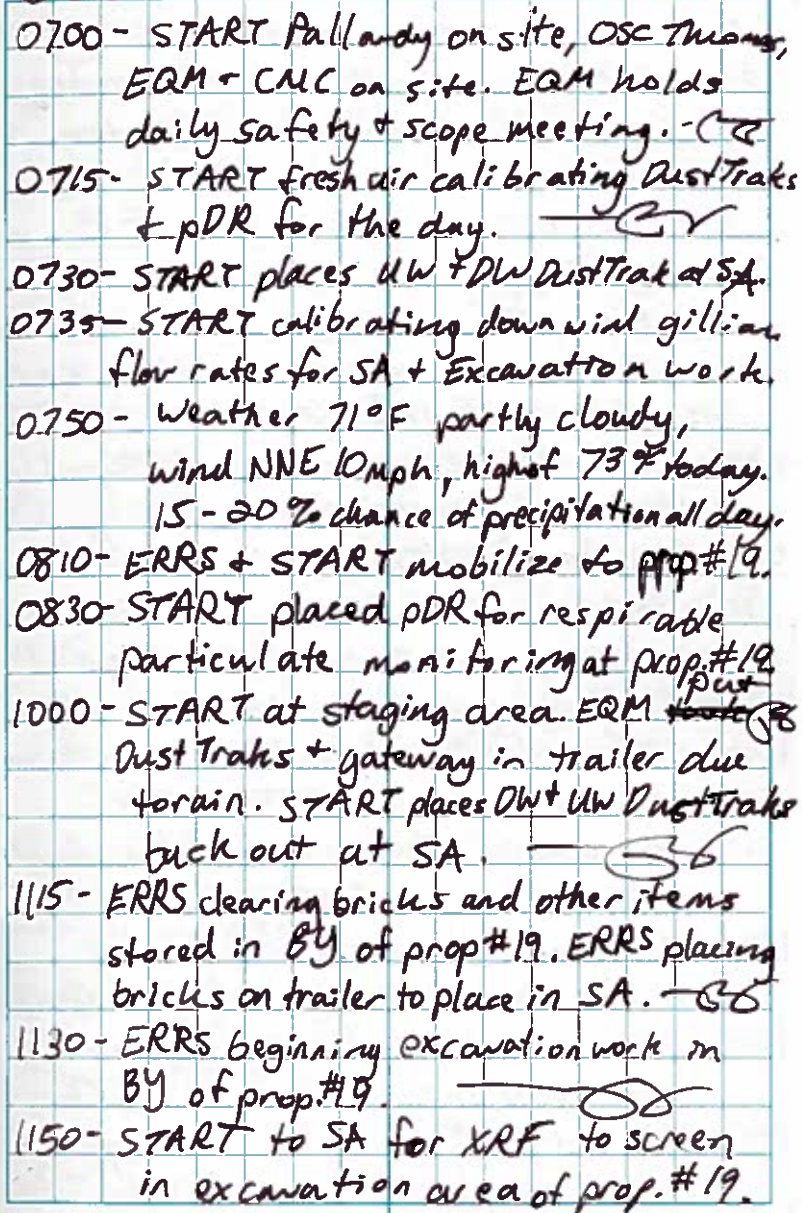 0700- START Pallardy on site, OSC Thomas,
EQM + CMC on site. EQM holds
daily safety + scope meeting.
0715- START fresh air calibrating DustTraks
+ pDR for the day.
0730- START places UW + DW DustTrak at SA.
0735- START calibrating downwind gillian
flow rates for SA + Excavation work.
0750- Weather 71°F partly cloudy,
wind NNE 10mph, high of 73°F today.
15-20% chance of precipitation all day.
0810- ERRS + START mobilize to prop#19.
0830- START placed pDR for respirable
particulate monitoring at prop.#19
1000- START at staging area. EQM put
DustTraks + gateway in trailer due
to rain. START places DW + UW DustTraks
back out at SA.
1115- ERRS clearing bricks and other items
stored in BY of prop#19. ERRS placing
bricks on trailer to place in SA.
1130- ERRS beginning excavation work in
BY of prop.#19.
1150- START to SA for XRF to screen
in excavation area of prop.#19.